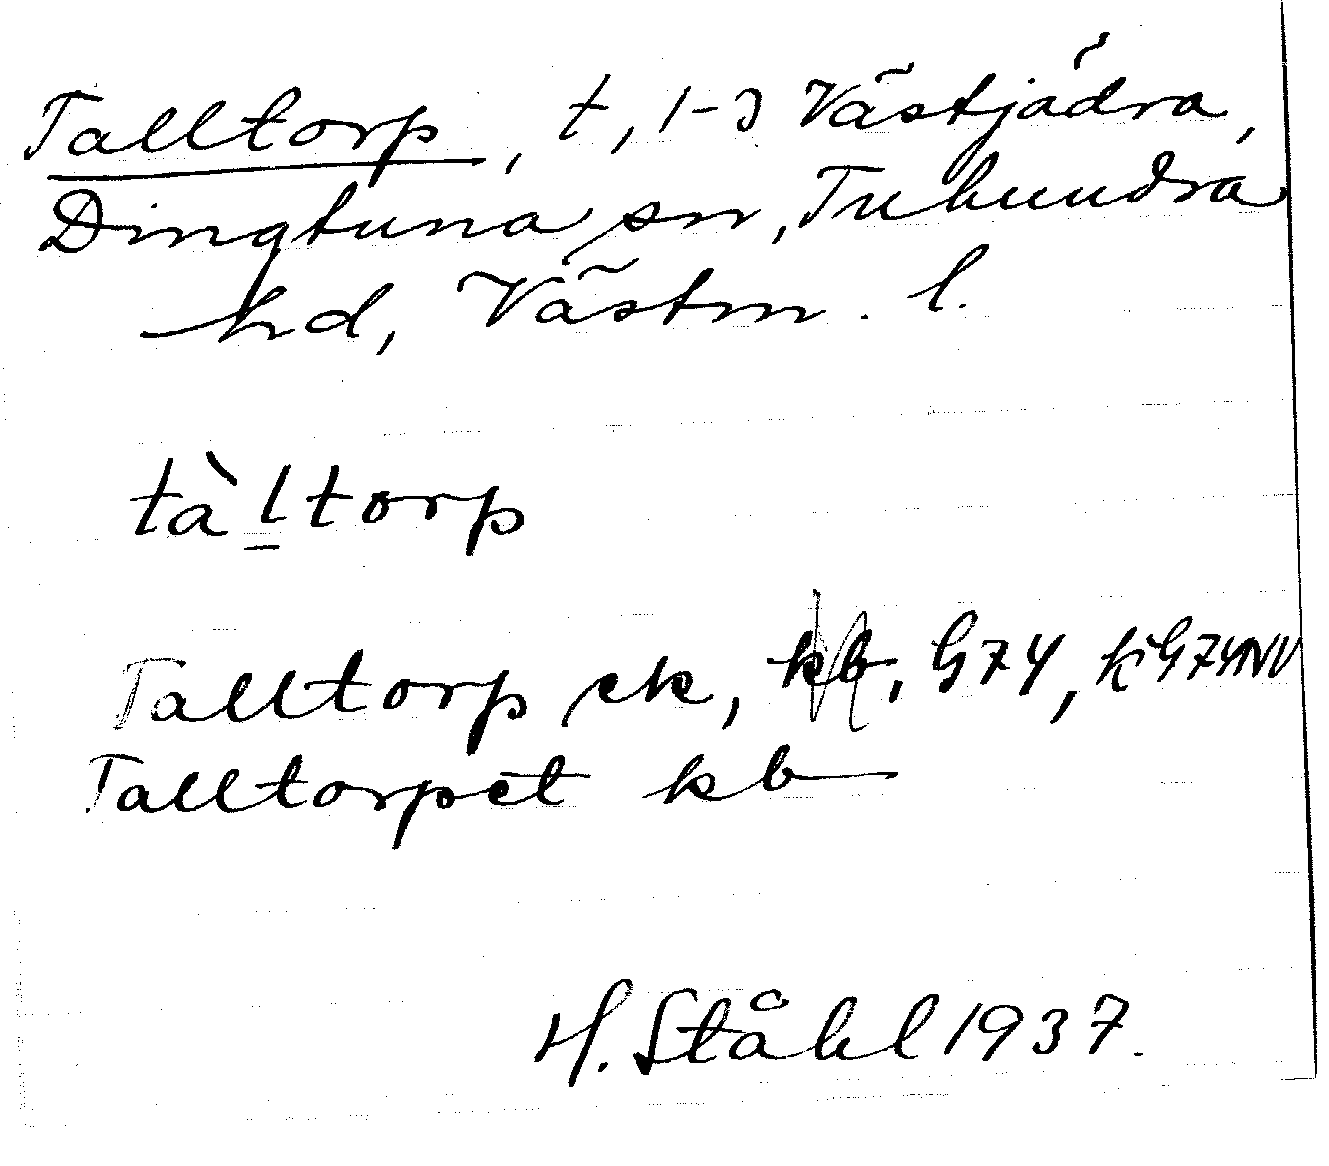 Talltorp, t, 1-3 Västjädra,
Dingtuna sn, Tuhundra
hd, Västm. l.
tàltorp
Talltorp ek, kb, G7Y, kG7YNV
Talltorpet kb
H. Ståhl 1937.